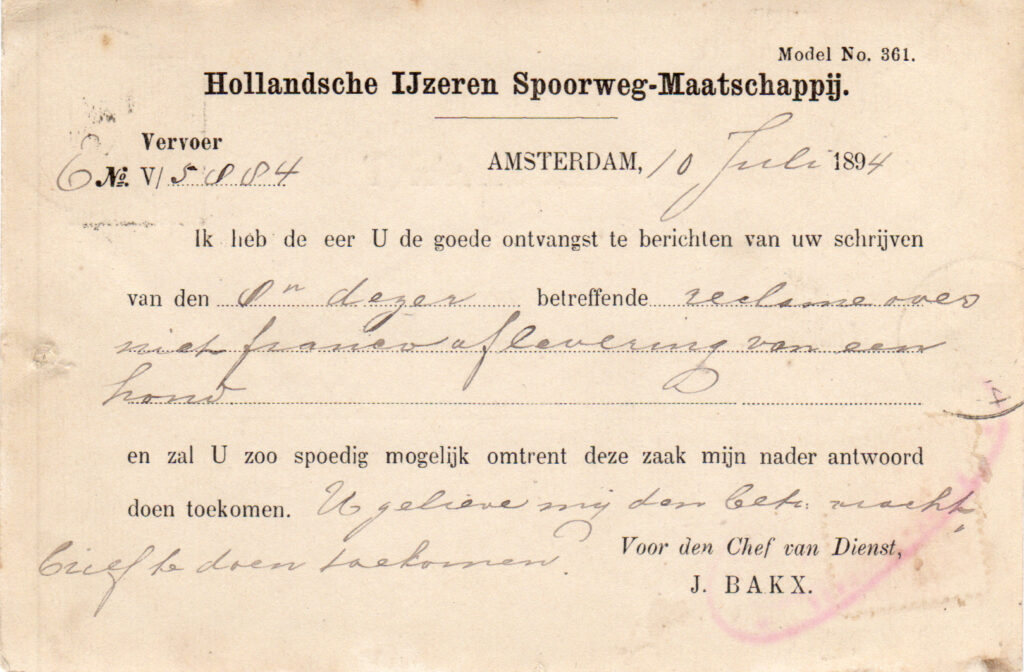 Model No. 361.
Hollandsche IJzeren Spoorweg-Maatschappij.
Vervoer
No. V/5884
AMSTERDAM, 10 Juli 1894
Ik heb de eer U de goede ontvangst te berichten van uw schrijven
van den 8n dezer betreffende reclame over
niet franco aflevering van een
hond
en zal U zoo spoedig mogelijk omtrent deze zaak mijn nader antwoord
doen toekomen. U gelieve mij den betr: vracht„
brief te doen toekomen
Voor den Chef van Dienst,
J. BAKX.